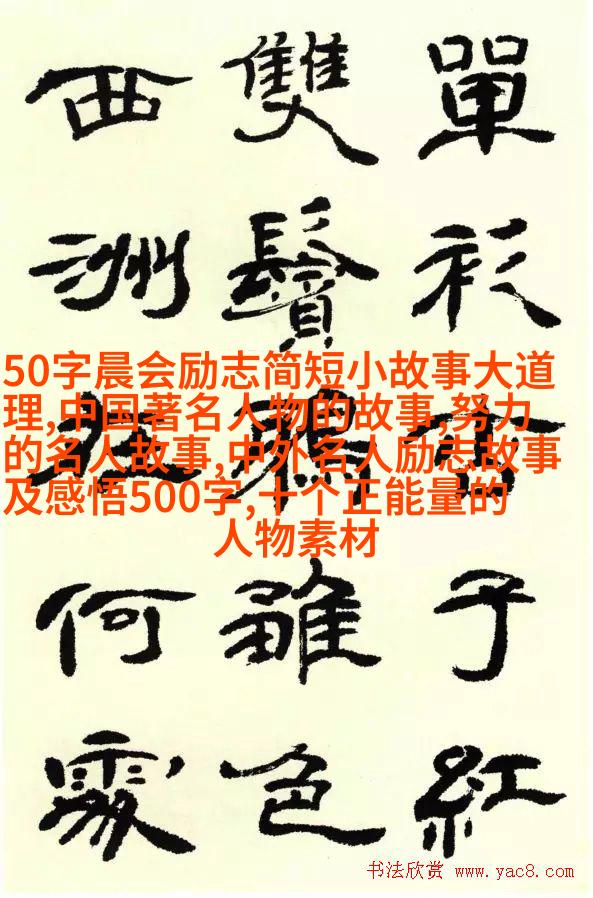 單衫杏子紅
雙鬢鴉雛色
西洲在何處
50字晨会励志简短小故事大道
理,中国著名人物的故事,努力
的名人故事,中外名人励志故事
及感悟500字,十个正能量的
人物素材
书法欣赏 www.yac8.com